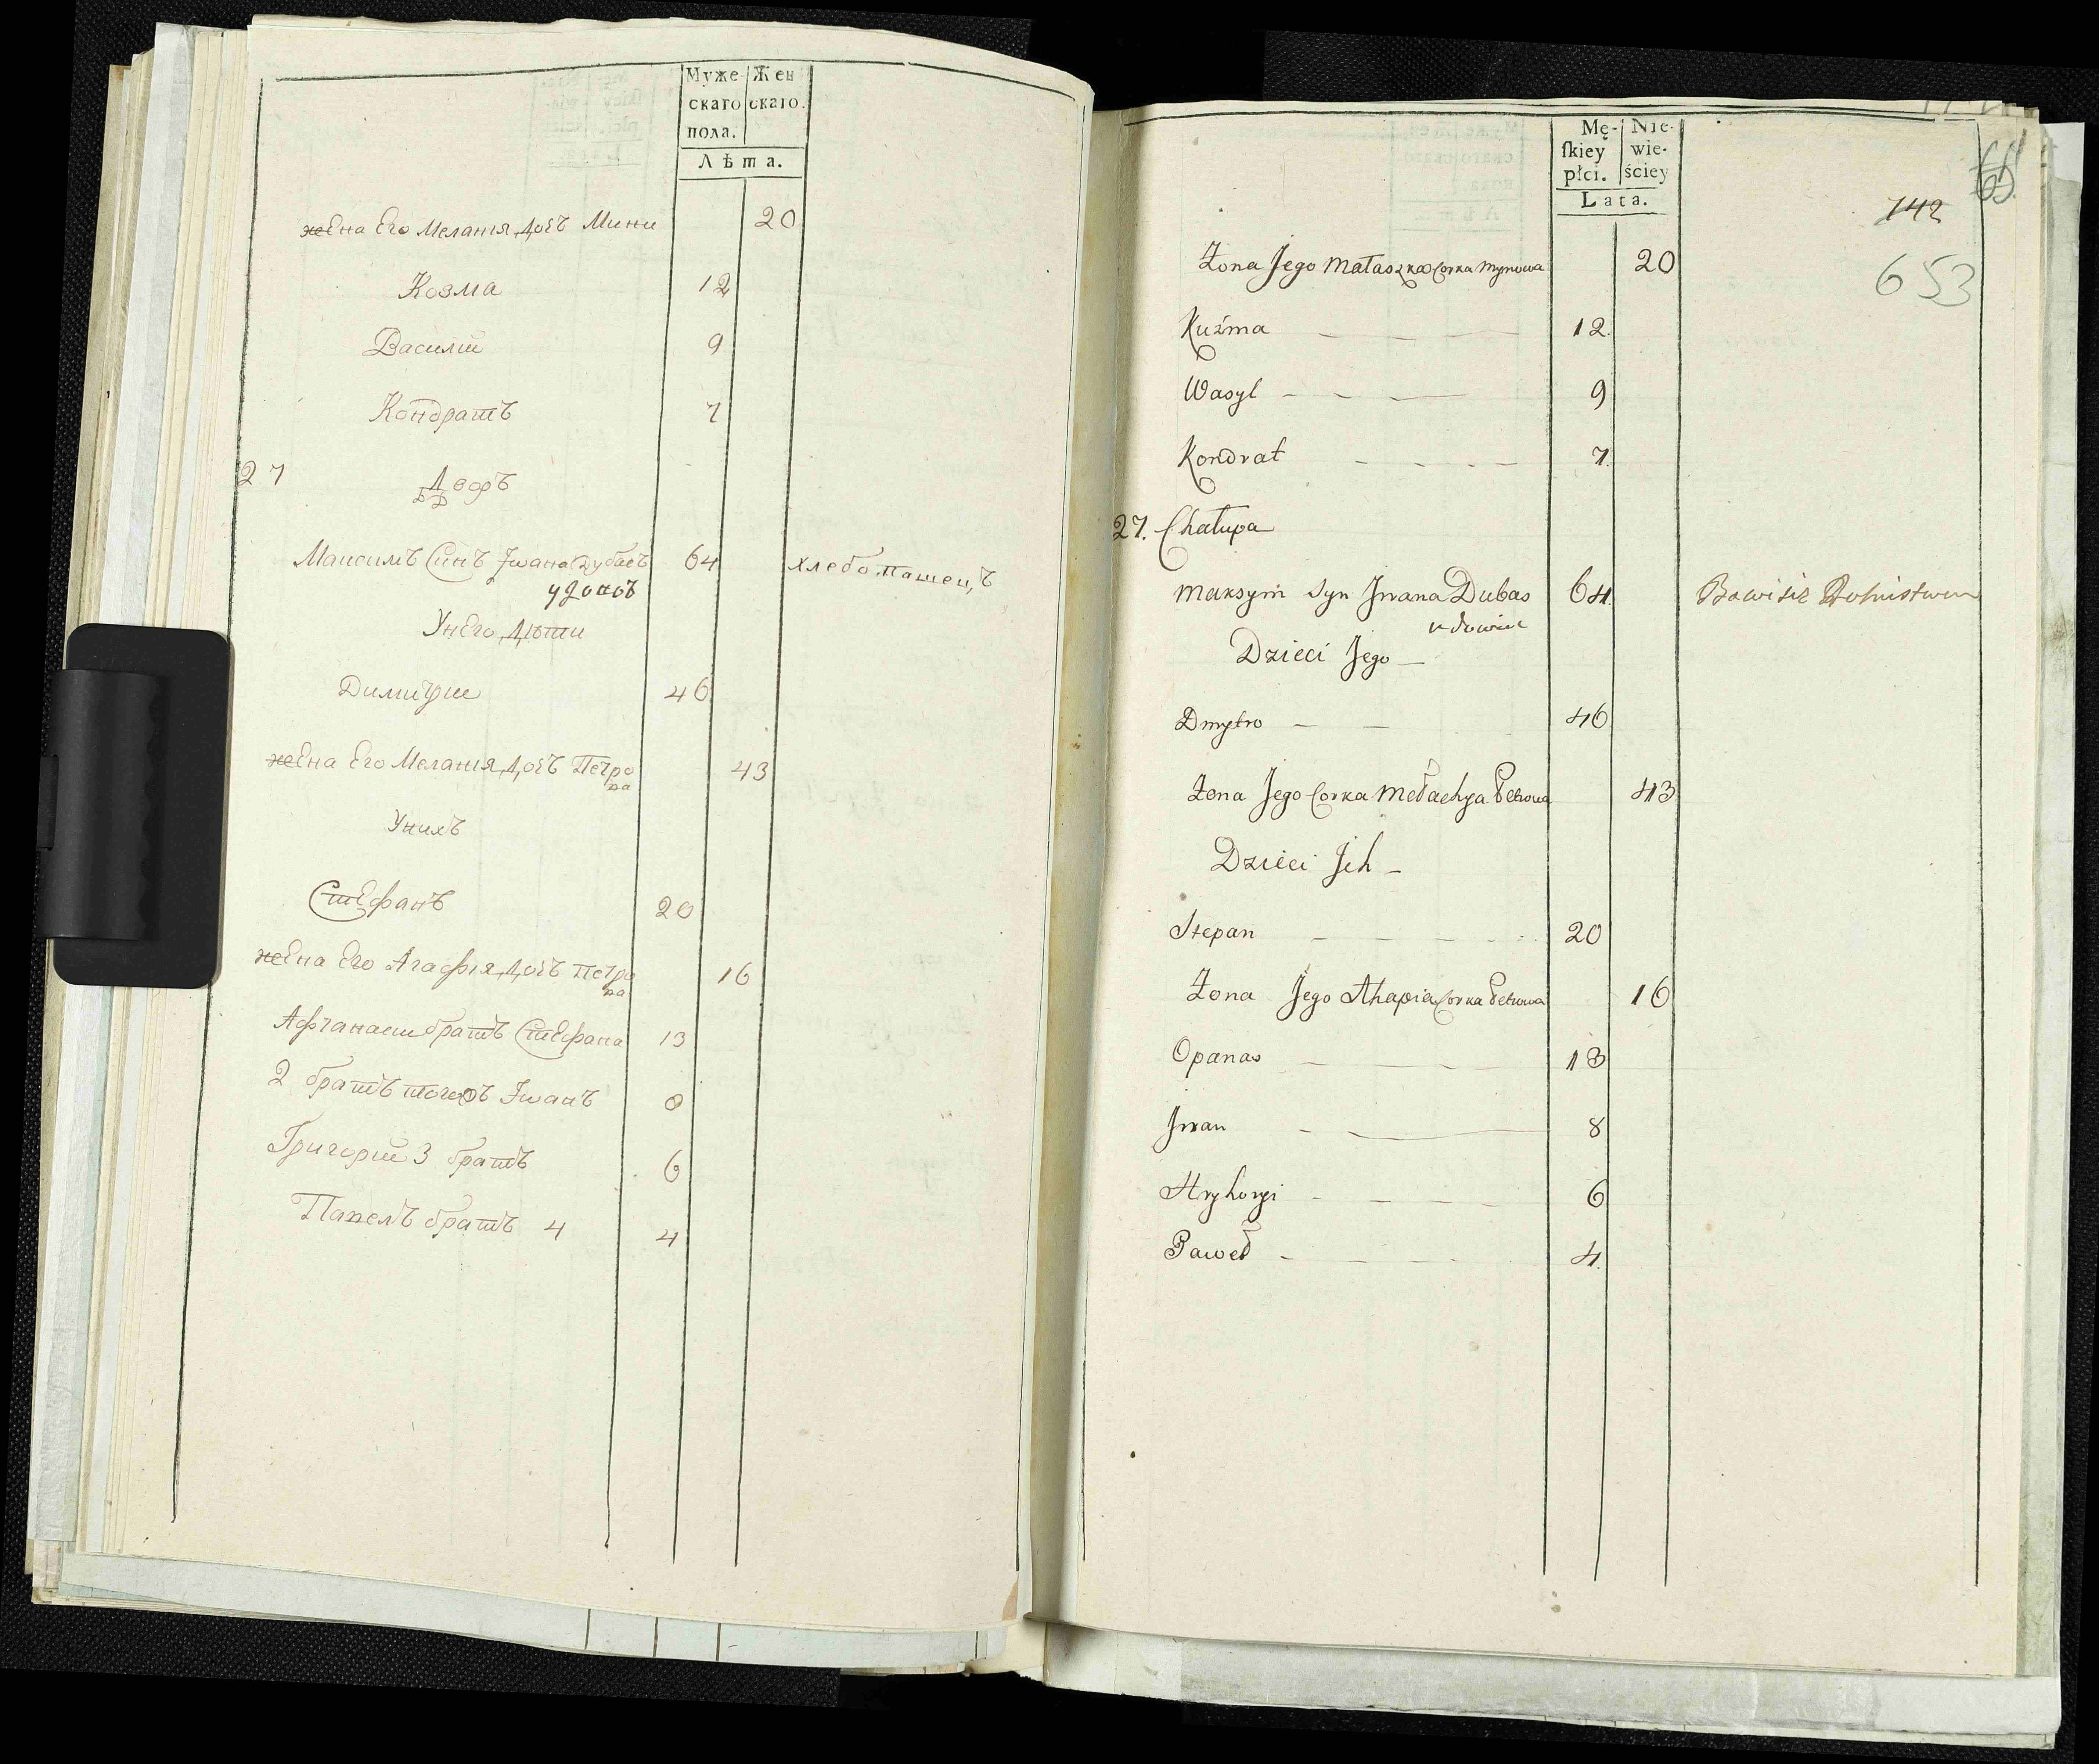 Муже- Жен
скаго скаго.
пола.
Лѣта.
жена Его Мелания дочъ Мини 20
Козма 12
Василий 9
Кондратъ 7
27 Дворъ
Максимъ Синъ Iwана Дубасъ 64 хлебопашецъ
удовъ
У него дѣти
Димитрии 46
жена Его Мелания дочъ Петро 43
ва
У нихъ
Стефанъ 20
жена Его Агафия дочъ Петро 16
ва
Афганасии братъ Стефана 13
2 братъ тогожъ Iwанъ 8
Григории 3 братъ 6
Павелъ братъ 4 4
Mę- Nie-
ſkiey wie-
płci. ściey
Lata.
142
653
Żona Jego Małaszka Corka Mynowa 20
Kuźma 12.
Wasyl 9
Kondrat 7.
27. Chałupa
Maksym Syn Jwana Dubas 64. Bawi się Rolnistwem
wdowiec
Dzieci Jego
Dmytro 46
Żona Jego Corka Mełachya Petrowa 43
Dzieci Jch
Stepan 20
Żona Jego Ahapia Corka Petrowa 16
Opanas 13
Jwan 8
Hryhoryi 6
Paweł 4.